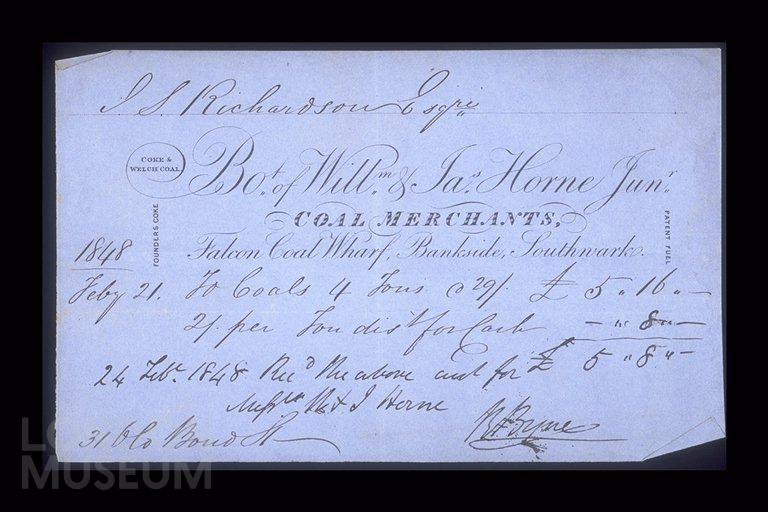 J S. Richardson Esqre
COKE &
WELCH COAL
Bot. of Willm. & Jas. Horne Junr.
COAL MERCHANTS,
FOUNDERS COKE
PATENT FUEL
Falcon Coal Wharf, Bankside, Southwark.
1848
Feby 21. To Coals 4 Tons @ 29/. £ 5 " 16 " -
2/. per Ton dist for Cash - " 8 " -
£ 5 " 8 " -
24 Feby. 1848 Recd the above and for
Messrs W & J Horne
31 Old Bond St
MUSEUM